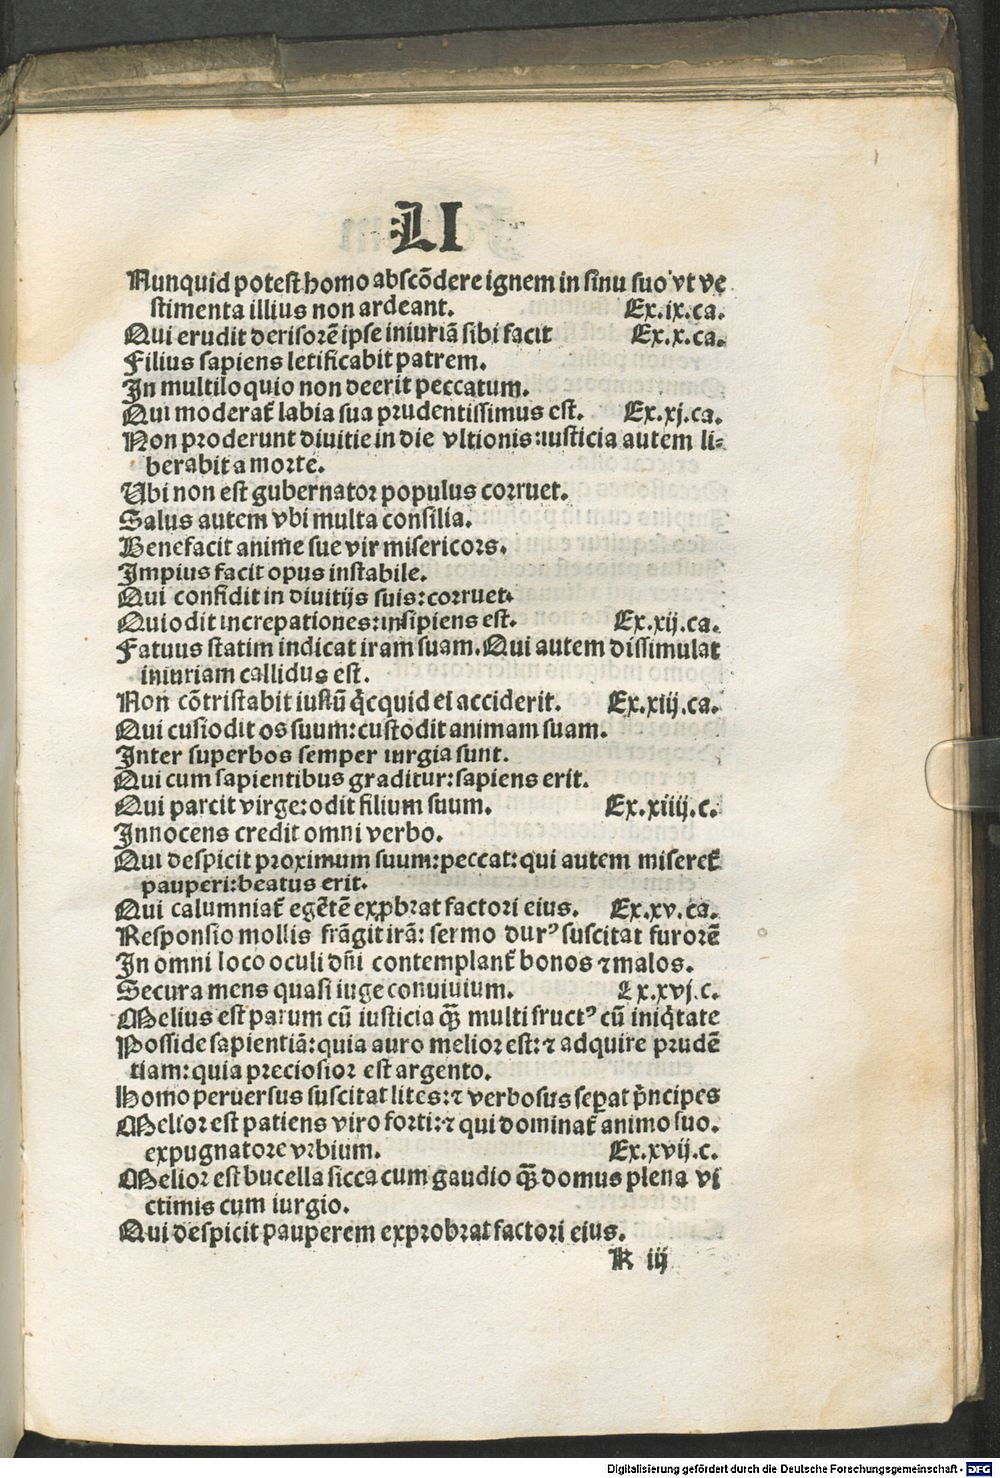 LI
Nunquid potest homo abscōdere ignem in sinu suo vt ve
stimenta illius non ardeant. Ex.ix.ca.
Qui erudit derisorē ipse iniuriā sibi facit Ex.x.ca.
Filius sapiens letificabit patrem.
In multiloquio non deerit peccatum.
Qui moderat̃ labia sua prudentissimus est. Ex.xj.ca.
Non proderunt diuitie in die vltionis: iusticia autem li⸗
berabit a morte.
Ubi non est gubernator populus corruet.
Salus autem vbi multa consilia.
Benefacit anime sue vir misericors.
Impius facit opus instabile.
Qui confidit in diuitijs suis: corruet.
Qui odit increpationes: insipiens est. Ex.xij.ca.
Fatuus statim indicat iram suam. Qui autem dissimulat
iniuriam callidus est.
Non cōtristabit iustū q̇cquid ei acciderit. Ex.xiij.ca.
Qui custodit os suum: custodit animam suam.
Inter superbos semper iurgia sunt.
Qui cum sapientibus graditur: sapiens erit.
Qui parcit virge: odit filium suum. Ex.xiiij.c.
Innocens credit omni verbo.
Qui despicit proximum suum: peccat: qui autem miseret̃
pauperi: beatus erit.
Qui calumniat̃ egētē exꝓbrat factori eius. Ex.xv.ca.
Responsio mollis frāgit irā: sermo durꝰ suscitat furorē
In omni loco oculi dñi contemplant̃ bonos ⁊ malos.
Secura mens quasi iuge conuiuium. Ex.xvj.c.
Melius est parum cū iusticia q̃ꝫ multi fructꝰ cū iniq̇tate
Posside sapientiā: quia auro melior est: ⁊ adquire prudē
tiam: quia preciosior est argento.
Homo peruersus suscitat lites: ⁊ verbosus seꝑat pṅcipes
Melior est patiens viro forti: ⁊ qui dominat̃ animo suo.
expugnatore vrbium. Ex.xvij.c.
Melior est bucella sicca cum gaudio q̃ꝫ domus plena vi
ctimis cum iurgio.
Qui despicit pauperem exprobrat factori eius.
K iij
Digitalisierung gefördert durch die Deutsche Forschungsgemeinschaft - DFG